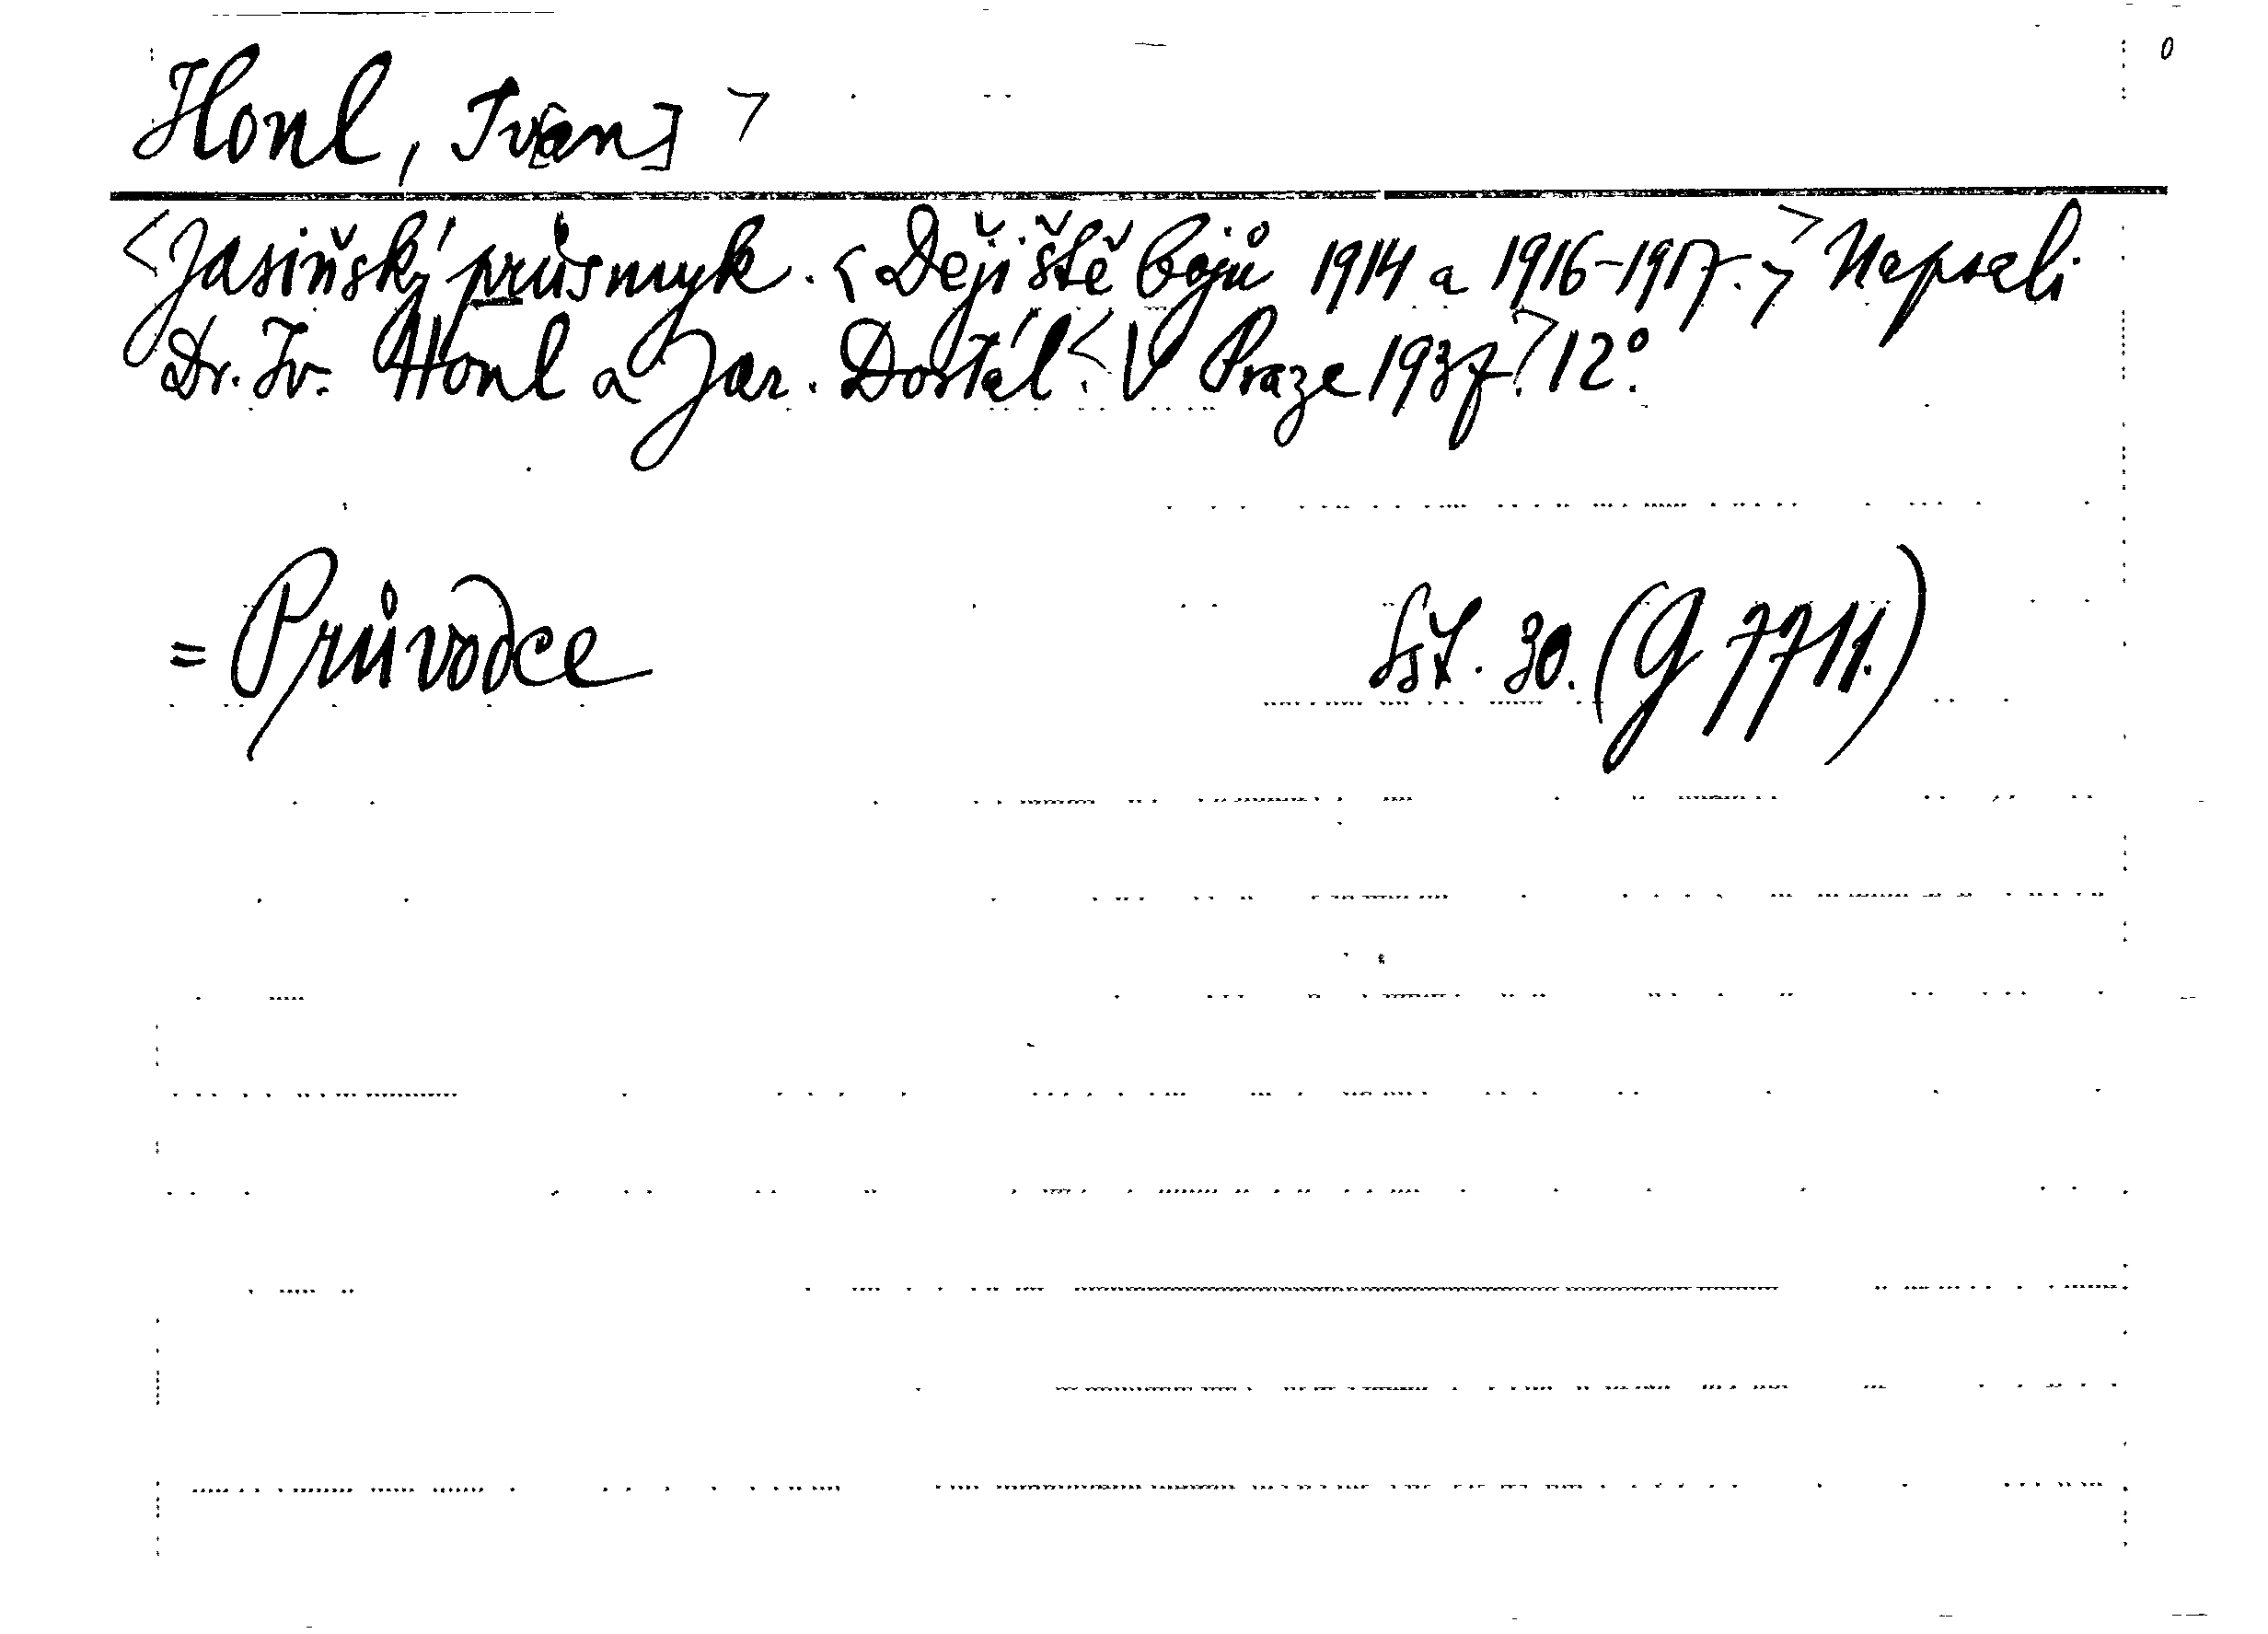 Honl, Iv[an] >
<Jasiňský průsmyk. <Dějiště bojů 1914 a 1916-1917.>> Napsali
Dr. Iv. Honl a Jar. Dostál.< V Praze 1937.> 12°.
= Průvodce 30. (G 7711.)